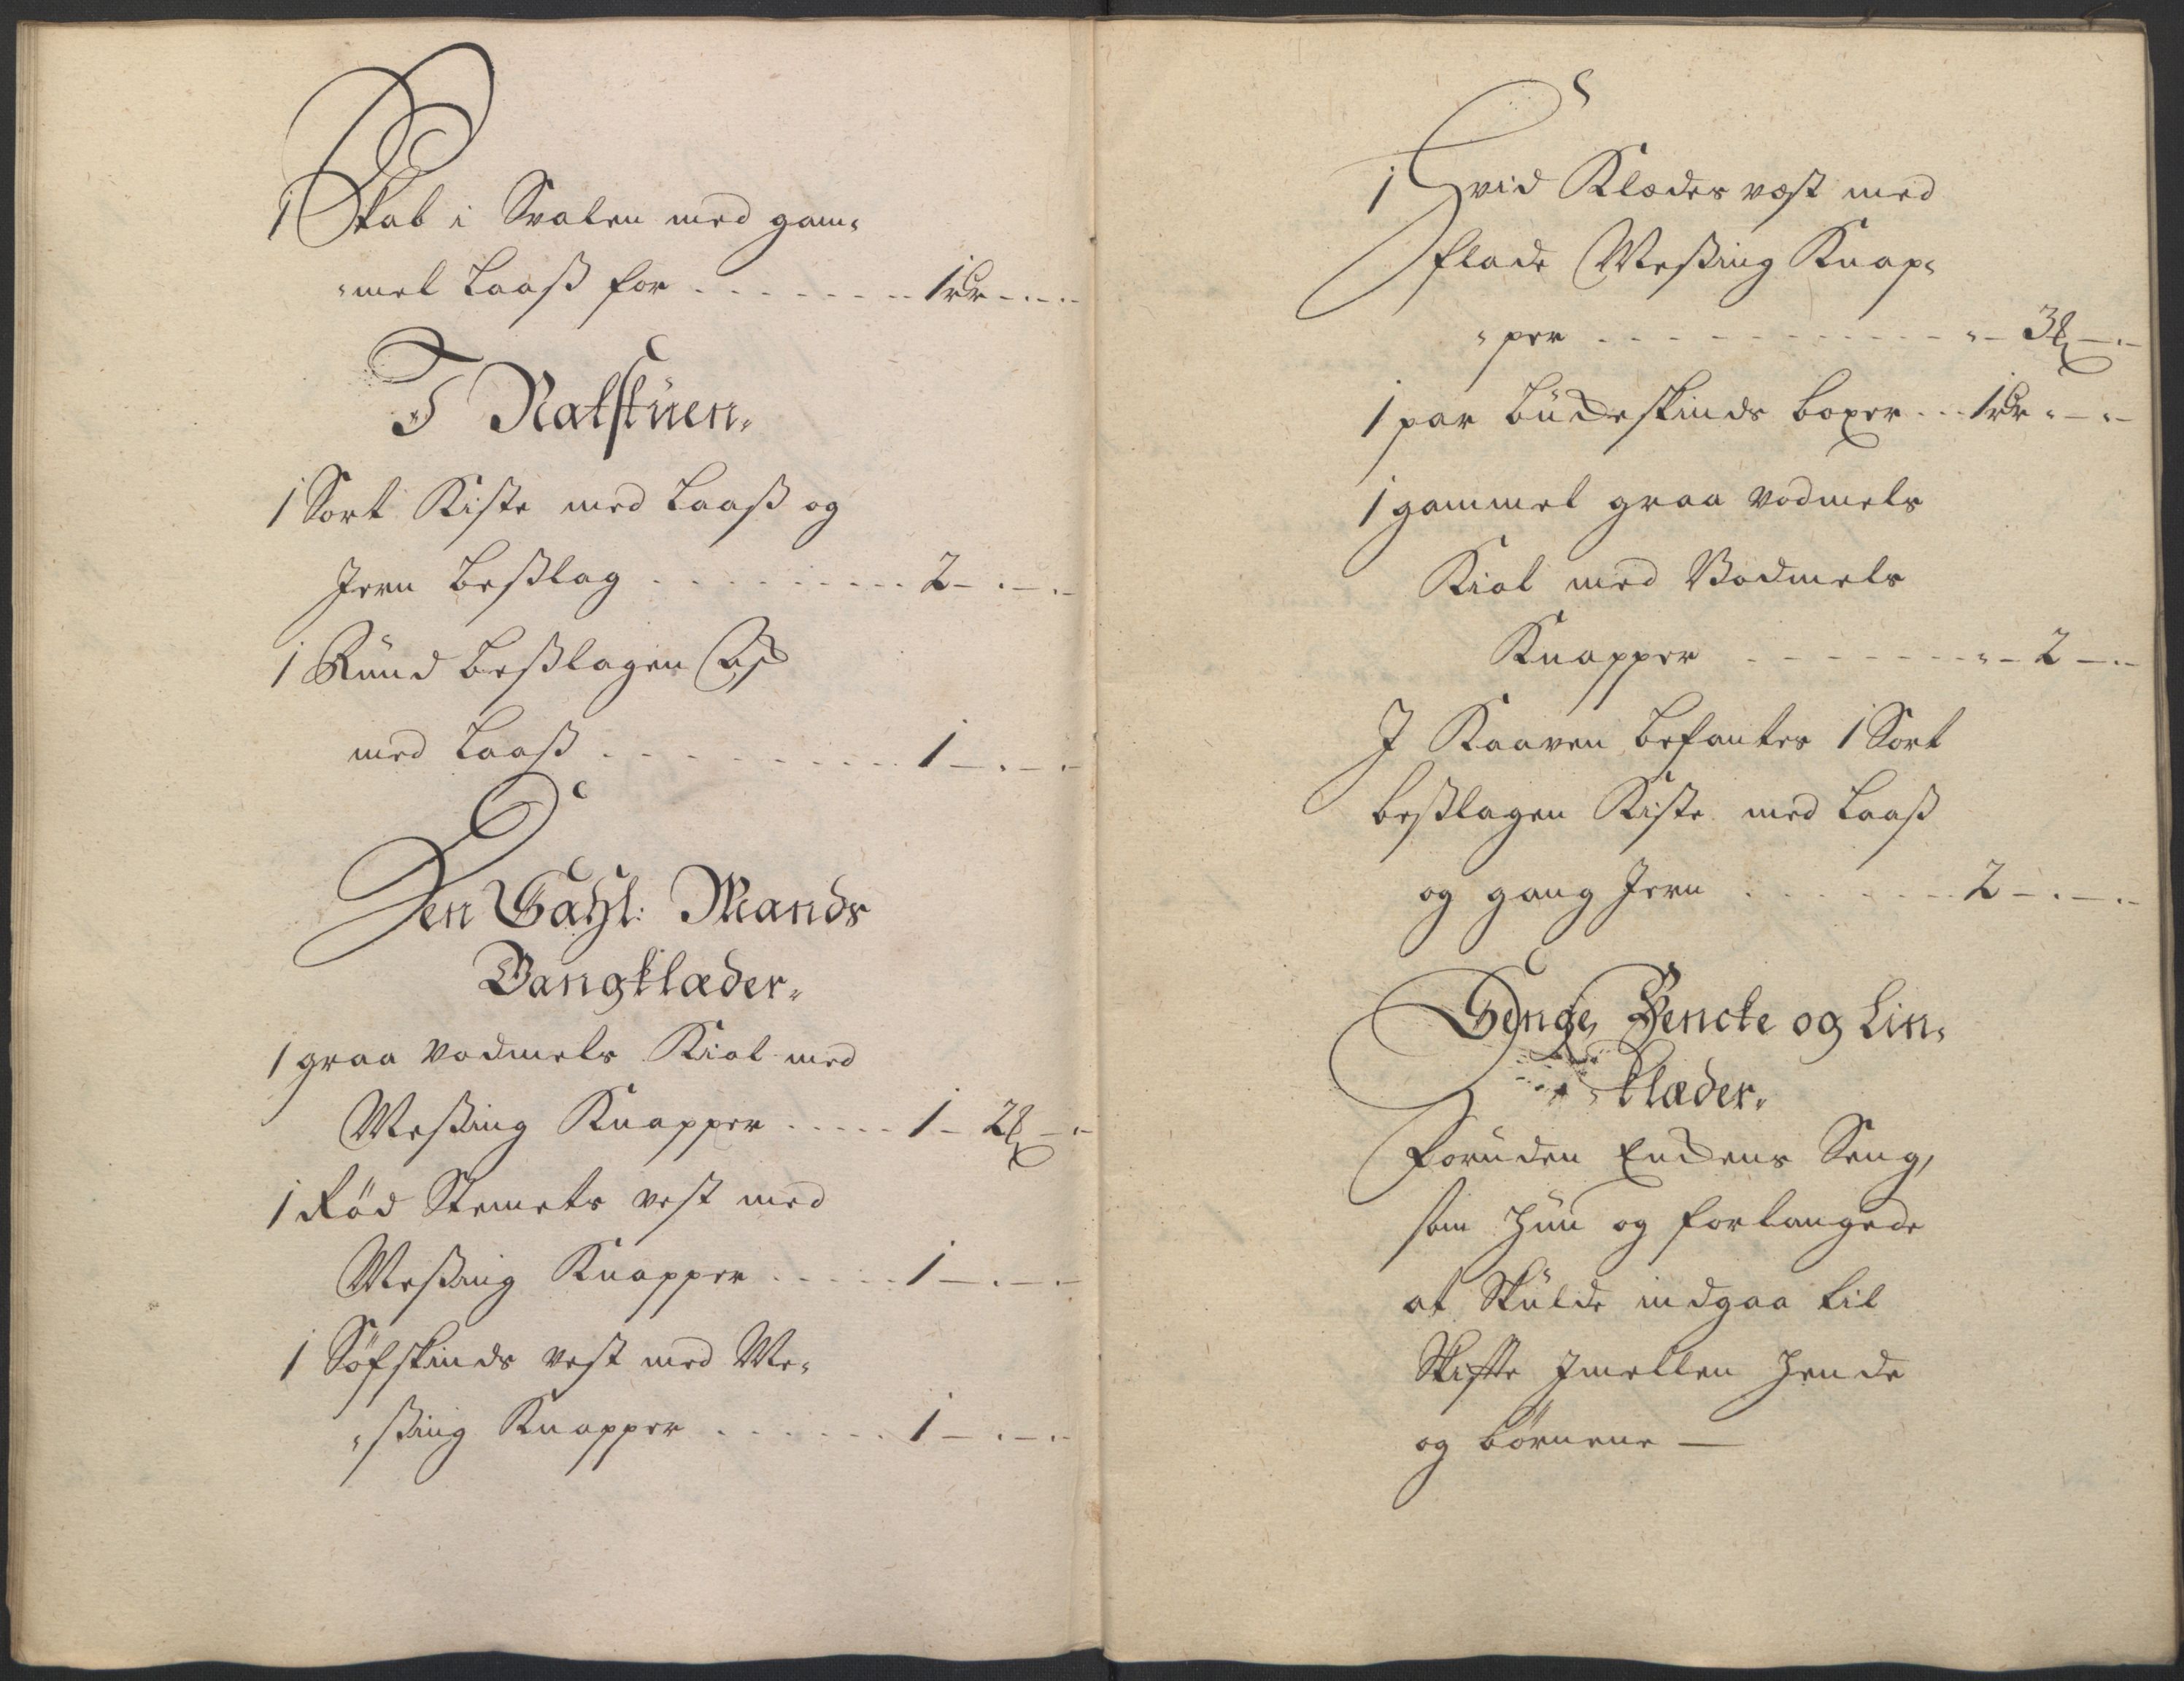 1 Skab i Svalen med gam=
=mel Laaß for . . . . . . . . 1 rdr - . - . -
I Natstuen.
1 Sort Kiste med Laaß og
Jern Beßlag . . . . . . . . . . 2 - . - . -
1 Rund beßlagen
med Laaß . . . . . . . . . 1 - . - . -
Den Sahl: Mands
Gangklæder.
1 graa Vadmels Kiol med
Meßing Knapper . . . . . 1 - 2 ₰ - . -
1 Rød Stemets vest med
Meßing Knapper . . . . . 1 - . - . -
1 Søfskinds vest med Me=
=ßing Knapper . . . . . . 1 - . - . -
1 Hvid Klædes vest med
flade Meßing Knap=
=per . . . . . . . . . . . . - 3 ₰ - . -
1 par buckeskinds boxer . . . 1 rdr - . -
1 gammel graa vadmels
Kiol med Vadmels
Knapper . . . . . . . . . - 2 - . -
I Kaaven befantes 1 Sort
beßlagen Kiste med Laaß
og gang Jern . . . . . . . 2 - . - . -
Senge, Bencke og Lin=
=klæder.
Foruden Enckens Seng,
som hun og forlangede
at Skulde indgaa til
Skifte Imellem hende
og børnene —